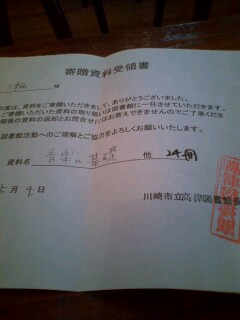 寄贈資料受領書
様
度は、資料をご寄贈いただきまして、ありがとうございました。
ご寄贈いただいた資料の取り扱いは図書館に一任させていただきます。
贈後の資料の返却とお問合せにはお答えできませんのでご了承くださ
図書館活動へのご理解とご協力をよろしくお願いいたします。
資料名 音楽の基礎 他 24冊
月 9 日
川崎市立高津図書館長